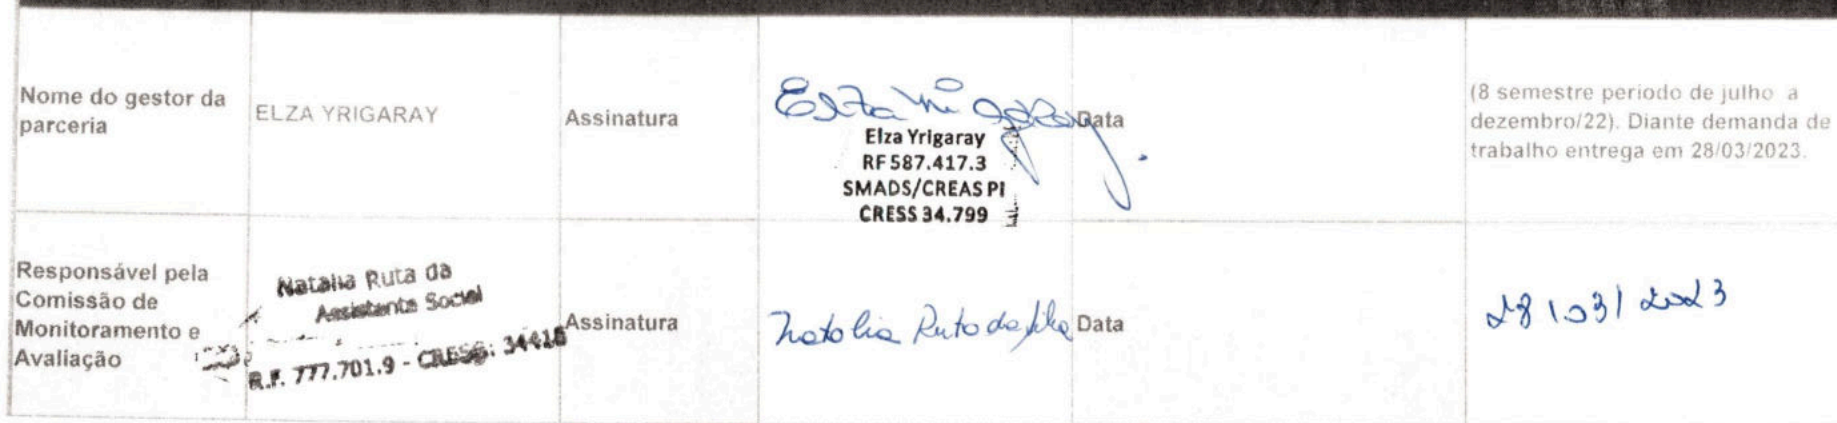 Nome do gestor da
parceria
ELZA YRIGARAY
Assinatura
Elza Yrigaray
Elza Yrigaray
RF 587.417.3
SMADS/CREAS PI
CRESS 34.799
Data
(8 semestre periodo de julho a
dezembro/22). Diante demanda de
trabalho entrega em 28/03/2023.
Responsável pela
Comissão de
Monitoramento e
Avaliação
Natalia Ruta da
Assistente Social
R.F. 777.701.9 - CRESS: 34418
Assinatura
Natalia Ruta da Silva
Data
28/03/2023